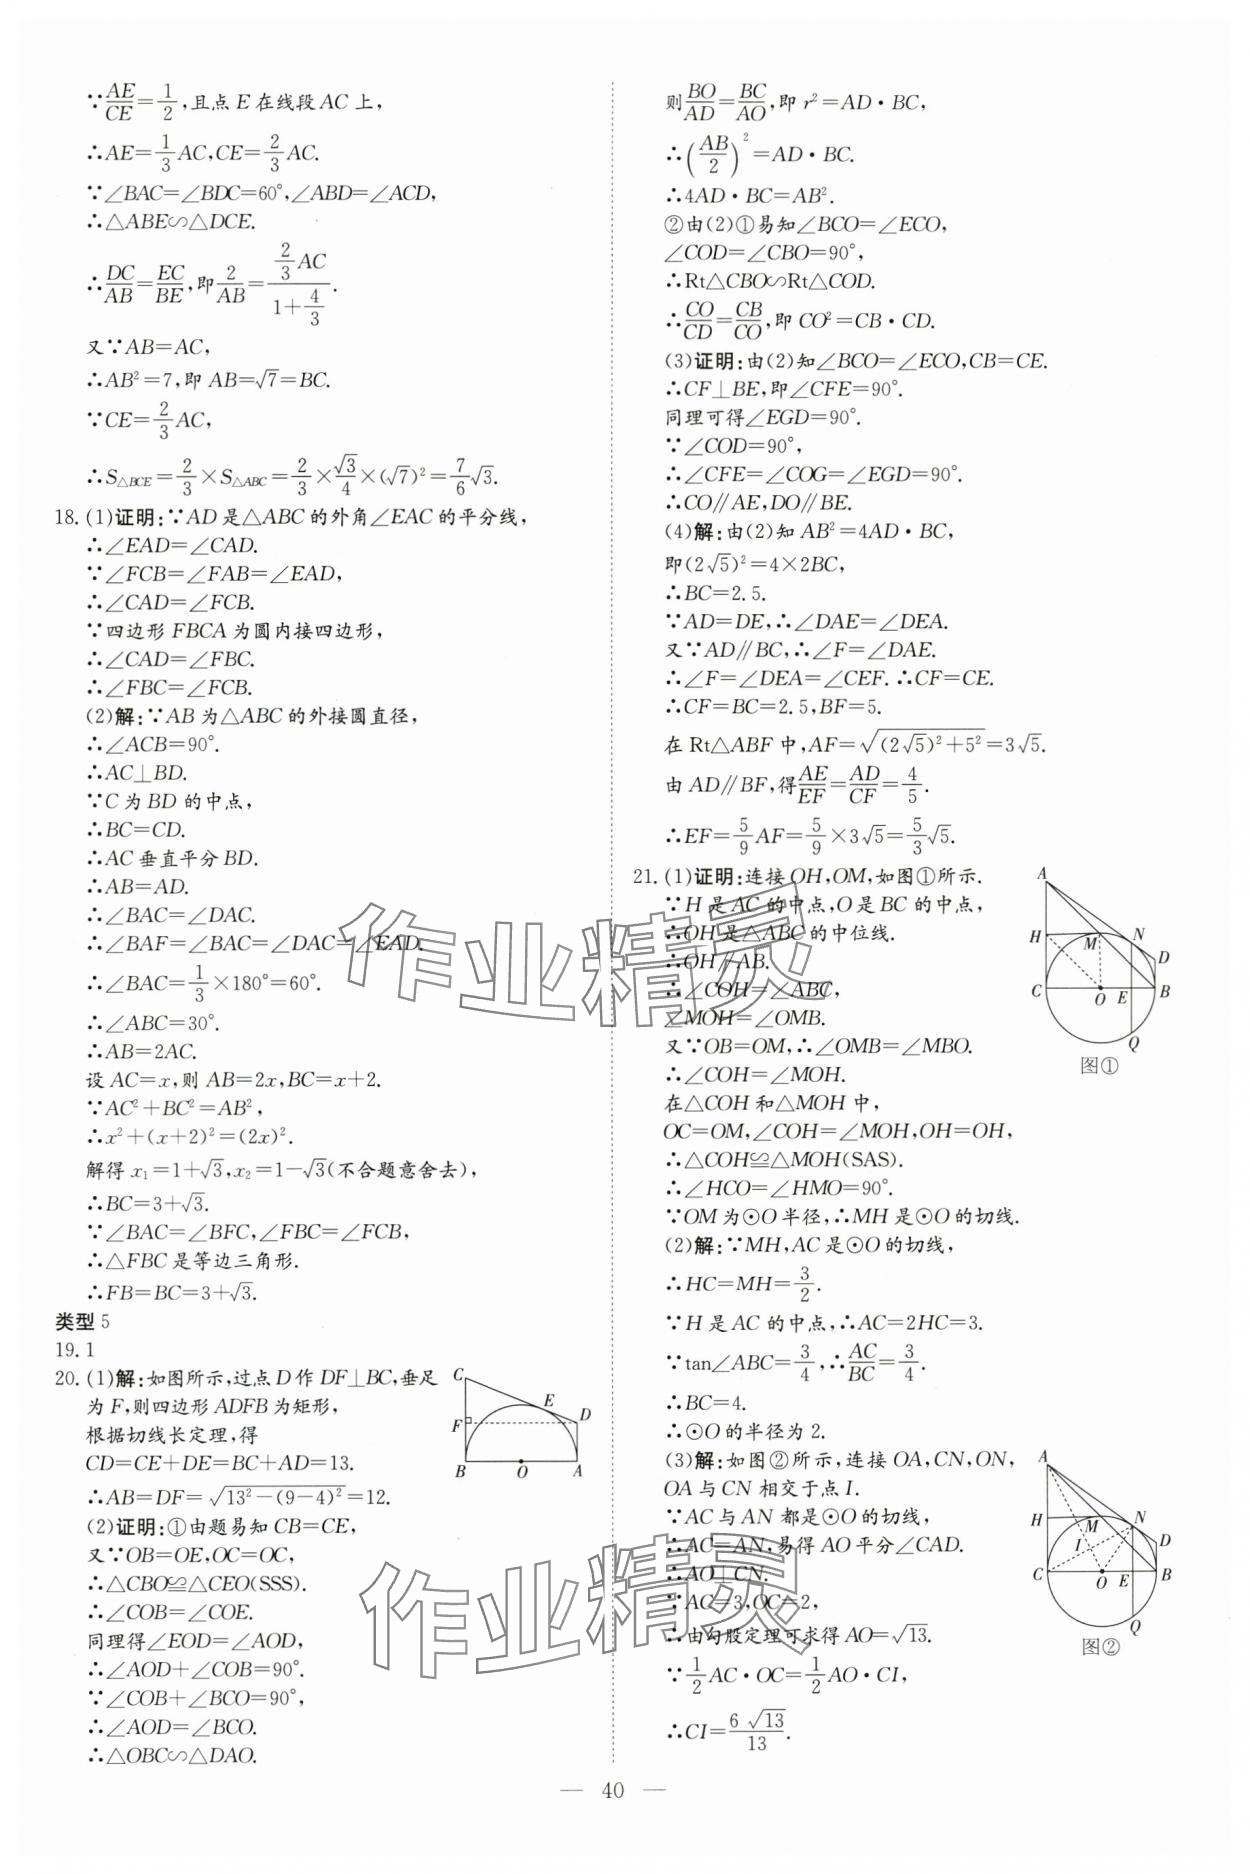 ∵AE/CE=1/2,且点 E 在线段 AC 上,
∴AE=1/3 AC,CE=2/3 AC.
∵∠BAC=∠BDC=60°,∠ABD=∠ACD,
∴△ABE∽△DCE.
∴DC/AB=EC/BE,即 2/AB=(2/3 AC)/(1+4/3).
又∵AB=AC,
∴AB²=7,即 AB=√7=BC.
∵CE=2/3 AC,
∴S△BCE=2/3×S△ABC=2/3×√3/4×(√7)²=7/6 √3.
18. (1)证明:∵AD 是△ABC 的外角∠EAC 的平分线,
∴∠EAD=∠CAD.
∵∠FCB=∠FAB=∠EAD,
∴∠CAD=∠FCB.
∵四边形 FBCA 为圆内接四边形,
∴∠CAD=∠FBC.
∴∠FBC=∠FCB.
(2)解:∵AB 为△ABC 的外接圆直径,
∴∠ACB=90°.
∴AC⊥BD.
∵C 为 BD 的中点,
∴BC=CD.
∴AC 垂直平分 BD.
∴AB=AD.
∴∠BAC=∠DAC.
∴∠BAF=∠BAC=∠DAC=∠EAD.
∴∠BAC=1/3×180°=60°.
∴∠ABC=30°.
∴AB=2AC.
设 AC=x,则 AB=2x,BC=x+2.
∵AC²+BC²=AB²,
∴x²+(x+2)²=(2x)².
解得 x₁=1+√3,x₂=1-√3(不合题意舍去),
∴BC=3+√3.
∵∠BAC=∠BFC,∠FBC=∠FCB,
∴△FBC 是等边三角形.
∴FB=BC=3+√3.
类型 5
19. 1
20. (1)解:如图所示,过点 D 作 DF⊥BC,垂足
为 F,则四边形 ADFB 为矩形,
根据切线长定理,得
CD=CE+DE=BC+AD=13.
∴AB=DF=√(13²-(9-4)²)=12.
C
E
F
D
B
O
A
(2)证明:①由题易知 CB=CE,
又∵OB=OE,OC=OC,
∴△CBO≌△CEO(SSS).
∴∠COB=∠COE.
同理得∠EOD=∠AOD,
∴∠AOD+∠COB=90°.
∵∠COB+∠BCO=90°,
∴∠AOD=∠BCO.
∴△OBC∽△DAO.
则 BO/AD=BC/AO,即 r²=AD·BC,
∴(AB/2)²=AD·BC.
∴4AD·BC=AB².
②由(2)①易知∠BCO=∠ECO,
∠COD=∠CBO=90°,
∴Rt△CBO∽Rt△COD.
∴CO/CD=CB/CO,即 CO²=CB·CD.
(3)证明:由(2)知∠BCO=∠ECO,CB=CE.
∴CF⊥BE,即∠CFE=90°.
同理可得∠EGD=90°.
∵∠COD=90°,
∴∠CFE=∠COG=∠EGD=90°.
∴CO∥AE,DO∥BE.
(4)解:由(2)知 AB²=4AD·BC,
即(2√5)²=4×2BC,
∴BC=2.5.
∵AD=DE,∴∠DAE=∠DEA.
又∵AD∥BC,∴∠F=∠DAE.
∴∠F=∠DEA=∠CEF.∴CF=CE.
∴CF=BC=2.5,BF=5.
在 Rt△ABF 中,AF=√((2√5)²+5²)=3√5.
由 AD∥BF,得 AE/EF=AD/CF=4/5.
∴EF=5/9 AF=5/9×3√5=5/3 √5.
21. (1)证明:连接 OH,OM,如图①所示.
∵H 是 AC 的中点,O 是 BC 的中点,
∴OH 是△ABC 的中位线.
∴OH∥AB.
∴∠COH=∠ABC,
∠MOH=∠OMB.
又∵OB=OM,∴∠OMB=∠MBO.
∴∠COH=∠MOH.
在△COH 和△MOH 中,
OC=OM,∠COH=∠MOH,OH=OH,
∴△COH≌△MOH(SAS).
∴∠HCO=∠HMO=90°.
∵OM 为⊙O 半径,∴MH 是⊙O 的切线.
A
H
M
N
D
C
O
E
B
Q
图①
(2)解:∵MH,AC 是⊙O 的切线,
∴HC=MH=3/2.
∵H 是 AC 的中点,∴AC=2HC=3.
∵tan∠ABC=3/4,∴AC/BC=3/4.
∴BC=4.
∴⊙O 的半径为 2.
(3)解:如图②所示,连接 OA,CN,ON,
OA 与 CN 相交于点 I.
∵AC 与 AN 都是⊙O 的切线,
∴AC=AN,易得 AO 平分∠CAD.
∴AO⊥CN.
∵AC=3,OC=2,
∴由勾股定理可求得 AO=√13.
∵1/2 AC·OC=1/2 AO·CI,
∴CI=6√13/13.
A
H
M
N
I
D
C
O
E
B
Q
图②
作业精灵
作业精灵
— 40 —